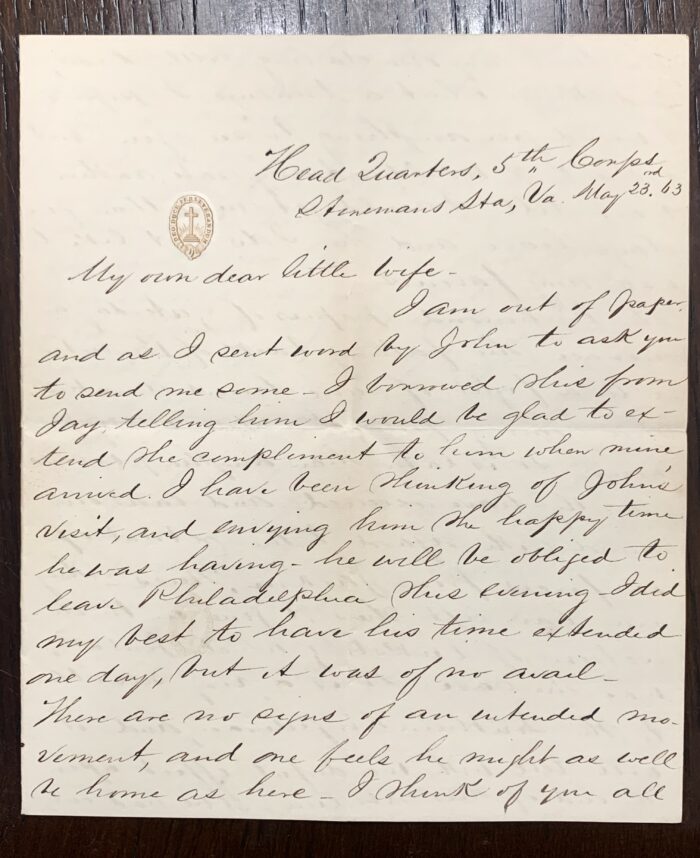 Head Quarters, 5th Corps
Stonemans Sta, Va. May 23rd. 63
My own dear little wife -
I am out of paper,
and as I sent word by John to ask you
to send me some - I borrowed this from
Jay, telling him I would be glad to ex-
tend the compliment to him when mine
arrived. I have been thinking of John's
visit, and envying him the happy time
he was having - he will be obliged to
leave Philadelphia this evening - I did
my best to have his time extended
one day, but it was of no avail -
There are no signs of an intended mo-
vement, and one feels he might as well
be home as here - I think of you all